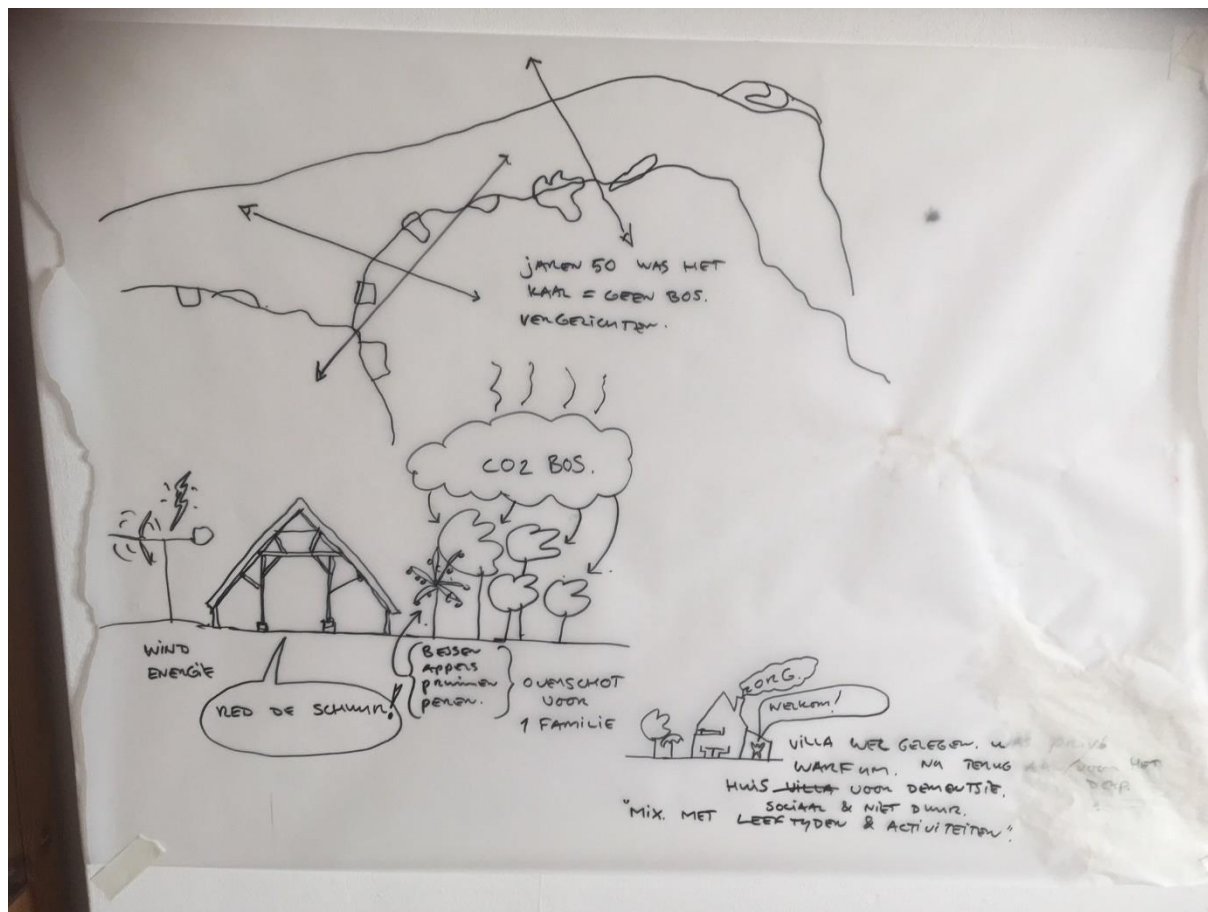 JAREN 50 WAS HET
KAAL = GEEN BOS.
VERGEZICHTEN.
CO2 BOS.
WIND
ENERGIE
RED DE SCHUUR!
BESSEN
APPELS
PRUIMEN
PEREN.
OVERSCHOT
VOOR
1 FAMILIE
ZORG.
WELKOM!
VILLA WEL GELEGEN. WAS PRIVÉ
WARFUM. NU TERUG VOOR HET
DORP.
HUIS VILLA VOOR DEMENTSIE.
SOCIAAL & NIET DUUR.
"MIX. MET LEEFTYDEN & ACTIVITEITEN".